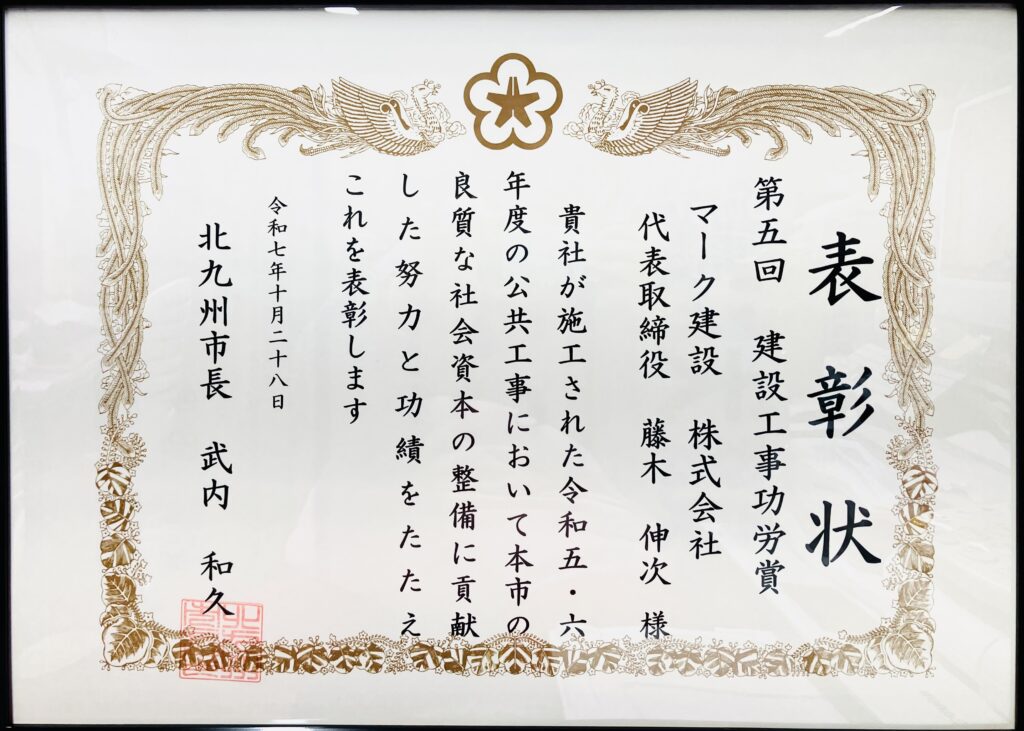 表彰状
第五回 建設工事功労賞
マーク建設 株式会社
代表取締役 藤木 伸次 様
貴社が施工された令和五・六
年度の公共工事において本市の
良質な社会資本の整備に貢献
した努力と功績をたたえ
これを表彰します
令和七年十月二十八日
北九州市長 武内 和久